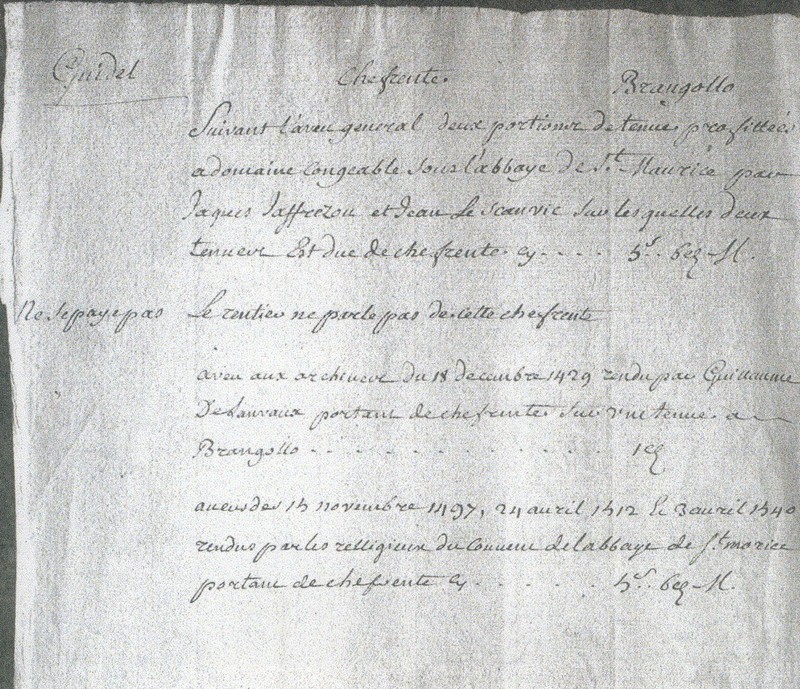 Guidel
Chefrente.
Brangollo
Suivant l'aveu general deux portions de tenue profittées
a domaine Congeable sous l'abbaye de St. Maurice par
Jaques Jaffrezou et Jean Le Scanvic sur lesquelles deux
tenues Est due de chefrente cy - . . . 5s. 6d M.
Ne se paye pas Le rentier ne parle pas de cette chefrente
aveu aux archives du 18 decembre 1429 rendu par Guillaume
De Lanvaux portant de chefrente sur une tenue a
Brangollo - - . . . . . . . . . 1d
aveus des 15 novembre 1497, 24 avril 1512 Et 3 avril 1540
rendus par les relligieux du Couvent de l'abbaye de St. morice
portant de chefrente cy . . . . . 5s. 6d M.